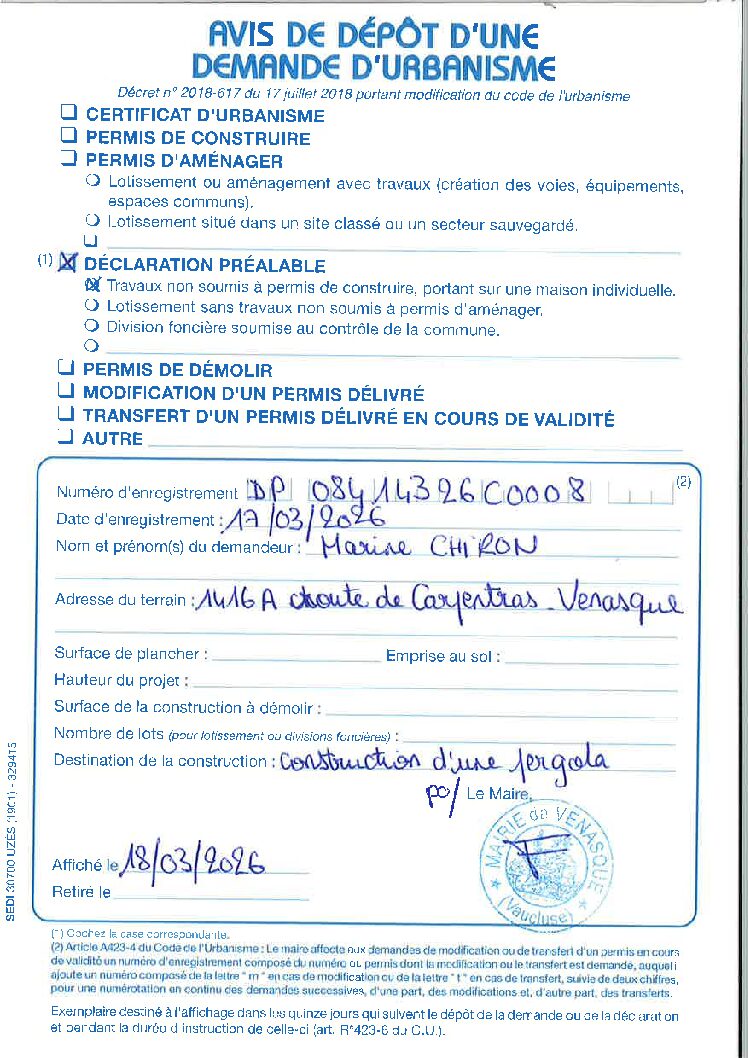 AVIS DE DÉPÔT D'UNE
DEMANDE D'URBANISME
Décret n° 2018-617 du 17 juillet 2018 portant modification du code de l'urbanisme
CERTIFICAT D'URBANISME
PERMIS DE CONSTRUIRE
PERMIS D'AMÉNAGER
Lotissement ou aménagement avec travaux (création des voies, équipements,
espaces communs).
Lotissement situé dans un site classé ou un secteur sauvegardé.
(1) DÉCLARATION PRÉALABLE
Travaux non soumis à permis de construire, portant sur une maison individuelle.
Lotissement sans travaux non soumis à permis d'aménager.
Division foncière soumise au contrôle de la commune.
PERMIS DE DÉMOLIR
MODIFICATION D'UN PERMIS DÉLIVRÉ
TRANSFERT D'UN PERMIS DÉLIVRÉ EN COURS DE VALIDITÉ
AUTRE
Numéro d'enregistrement DP 084 143 26 C0008 (2)
Date d'enregistrement : 17/03/2026
Nom et prénom(s) du demandeur : Marine CHIRON
Adresse du terrain : 1416 A route de Carpentras - Venasque
Surface de plancher : Emprise au sol :
Hauteur du projet :
Surface de la construction à démolir :
Nombre de lots (pour lotissement ou divisions foncières) :
Destination de la construction : Construction d'une pergola
po/ Le Maire,
MAIRIE de VENASQUE
(Vaucluse)
Affiché le 18/03/2026
Retiré le
SEDI 30700 UZÈS (1901) - 329415
(1) Cochez la case correspondante.
(2) Article A423-4 du Code de l'Urbanisme : Le maire affecte aux demandes de modification ou de transfert d'un permis en cours
de validité un numéro d'enregistrement composé du numéro du permis dont la modification ou le transfert est demandé, auquel il
ajoute un numéro composé de la lettre " m " en cas de modification ou de la lettre " t " en cas de transfert, suivie de deux chiffres,
pour une numérotation en continu des demandes successives, d'une part, des modifications et, d'autre part, des transferts.
Exemplaire destiné à l'affichage dans les quinze jours qui suivent le dépôt de la demande ou de la déclaration
et pendant la durée d'instruction de celle-ci (art. R*423-6 du C.U.).